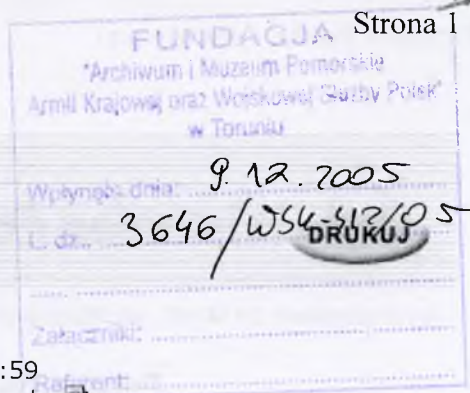 Strona 1
FUNDACJA
"Archiwum i Muzeum Pomorskie
Armii Krajowej oraz Wojskowej Służby Polek"
w Toruniu
Wpłynęło dnia: 9.12.2005
L. dz. 3646/WSK-512/05
DRUKUJ
Załączniki:
:59
Referent: